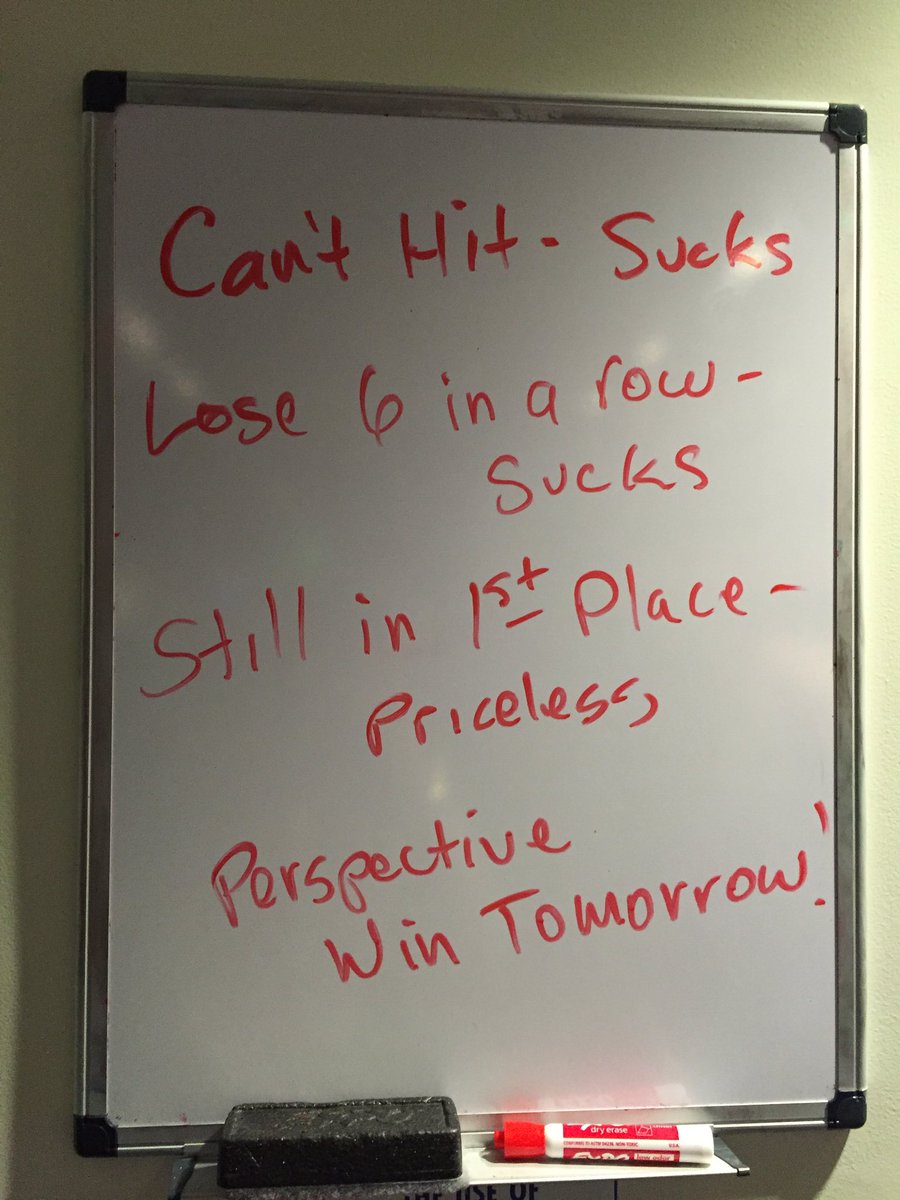 Can't Hit - Sucks
Lose 6 in a row -
Sucks
Still in 1st Place -
Priceless,
Perspective
Win Tomorrow!
dry erase
CONFORMS TO ASTM D4236 NON-TOXIC
U.S.A.
EXPO low odor
THE USE OF